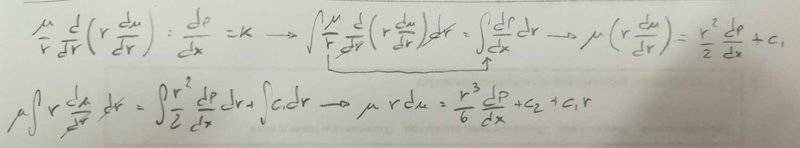 μ/r d/dr (r dμ/dr) = dp/dx = K → ∫ μ/r d/dr (r dμ/dr) dr = ∫ dp/dx dr → μ (r dμ/dr) = r²/2 dp/dx + c₁
μ ∫ r dμ/dr dr = ∫ r²/2 dp/dx dr + ∫ c₁ dr → μ r dμ = r³/6 dp/dx + c₂ + c₁ r